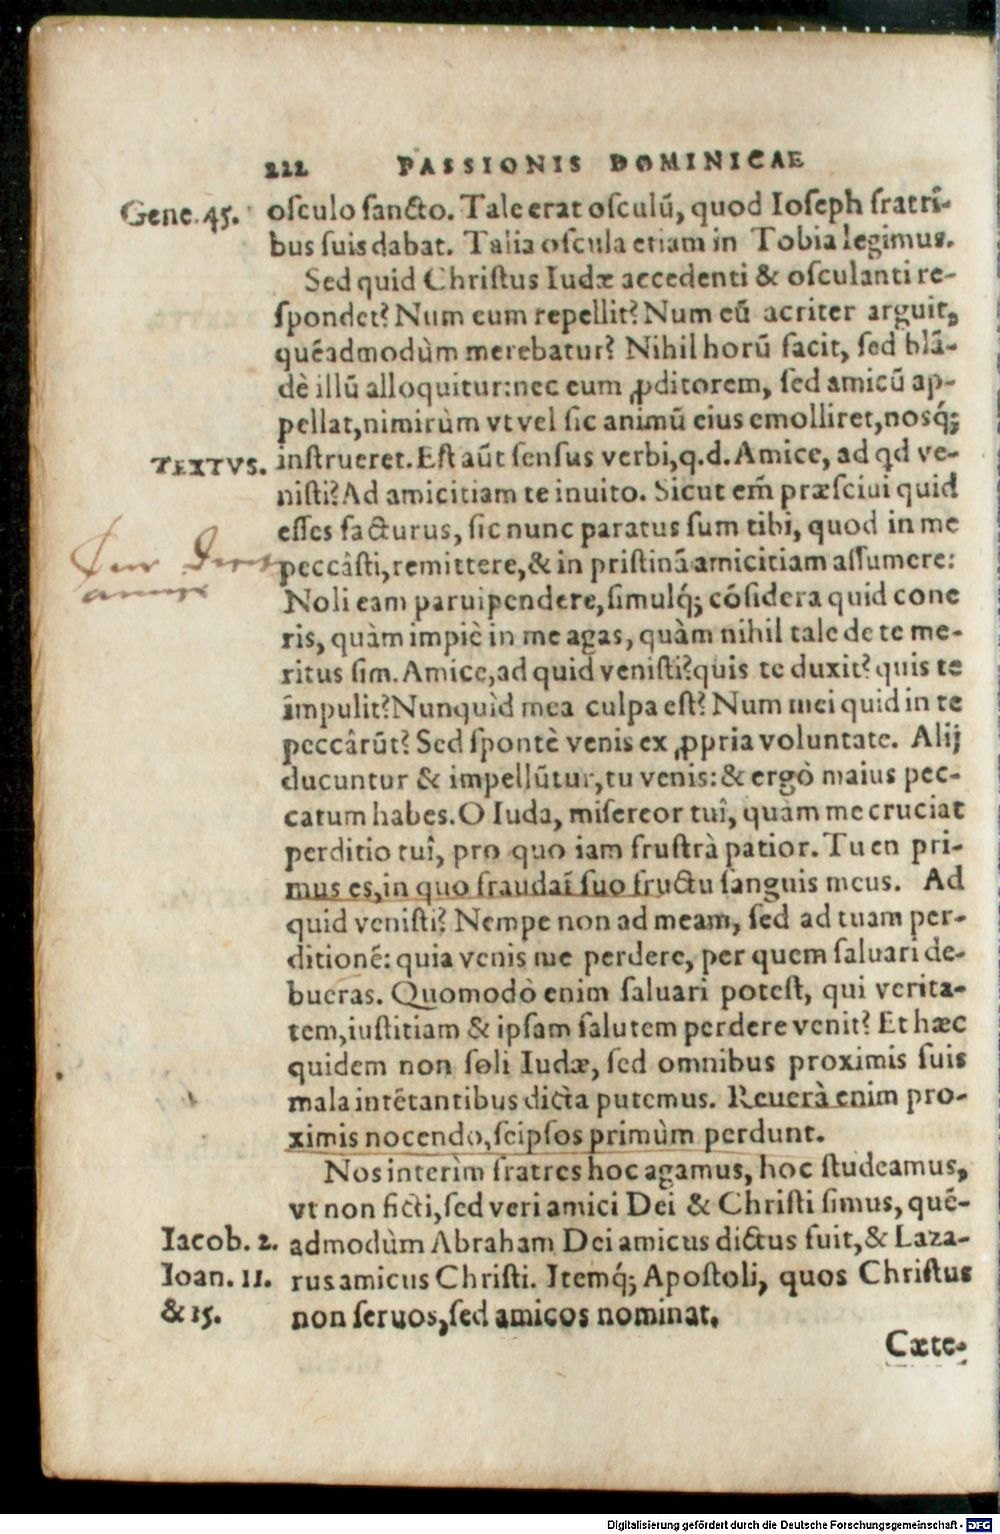 222 PASSIONIS DOMINICAE
Gene. 45. osculo sancto. Tale erat osculū, quod Ioseph fratri-
bus suis dabat. Talia oscula etiam in Tobia legimus.
Sed quid Christus Iudæ accedenti & osculanti re-
spondet? Num eum repellit? Num eū acriter arguit,
quēadmodùm merebatur? Nihil horū facit, sed blā-
dè illū alloquitur: nec eum ꝓditorem, sed amicū ap-
pellat, nimirùm vt vel sic animū eius emolliret, nosq́;
TEXTVS. instrueret. Est aūt sensus verbi, q.d. Amice, ad qd ve-
nisti? Ad amicitiam te inuito. Sicut em̄ præsciui quid
esses facturus, sic nunc paratus sum tibi, quod in me
peccâsti, remittere, & in pristinā amicitiam assumere:
Noli eam paruipendere, simulq́; cōsidera quid cone
ris, quàm impiè in me agas, quàm nihil tale de te me-
ritus sim. Amice, ad quid venisti? quis te duxit? quis te
īmpulit? Nunquìd mea culpa est? Num mei quid in te
peccârūt? Sed spontè venis ex ꝓpria voluntate. Alij
ducuntur & impellūtur, tu venis: & ergò maius pec-
catum habes. O Iuda, misereor tuî, quàm me cruciat
perditio tuî, pro quo iam frustrà patior. Tu en pri-
mus es, in quo fraudat̄ suo fructu sanguis meus. Ad
quid venisti? Nempe non ad meam, sed ad tuam per-
ditionē: quia venis me perdere, per quem saluari de-
bueras. Quomodò enim saluari potest, qui verita-
tem, iustitiam & ipsam salutem perdere venit? Et hæc
quidem non soli Iudæ, sed omnibus proximis suis
mala intētantibus dicta putemus. Reuerà enim pro-
ximis nocendo, seipsos primùm perdunt.
Nos interìm fratres hoc agamus, hoc studeamus,
vt non ficti, sed veri amici Dei & Christi simus, quē-
Iacob. 2. admodùm Abraham Dei amicus dictus fuit, & Laza-
Ioan. 11. rus amicus Christi. Itemq́; Apostoli, quos Christus
& 15. non seruos, sed amicos nominat.
Cæte-
Digitalisierung gefördert durch die Deutsche Forschungsgemeinschaft - DFG